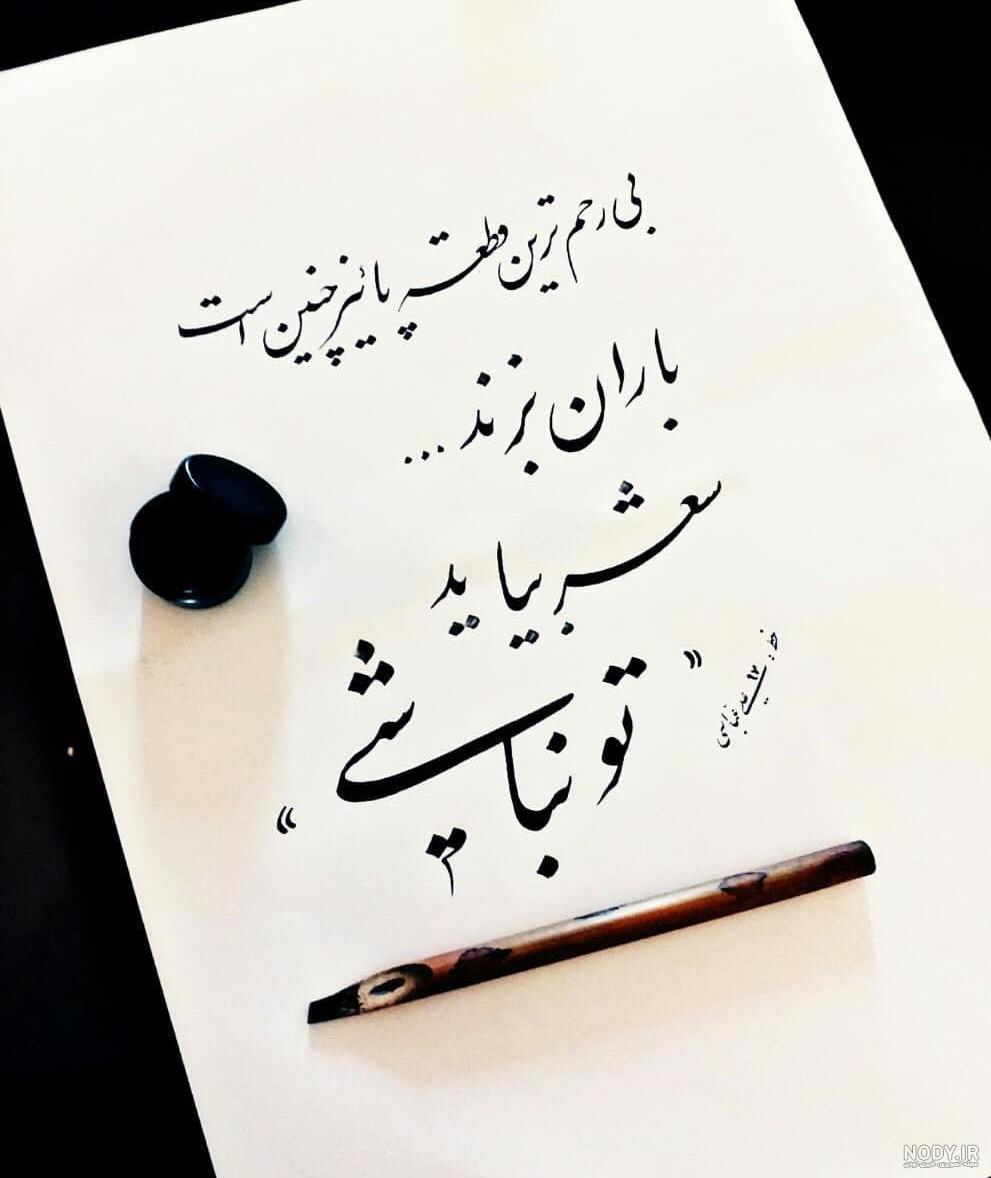 بی رحم ترین قطعه پائیز چنین است
باران بزند ...
شعر بیاید
« تو نباشی »
خط :
NODY.IR